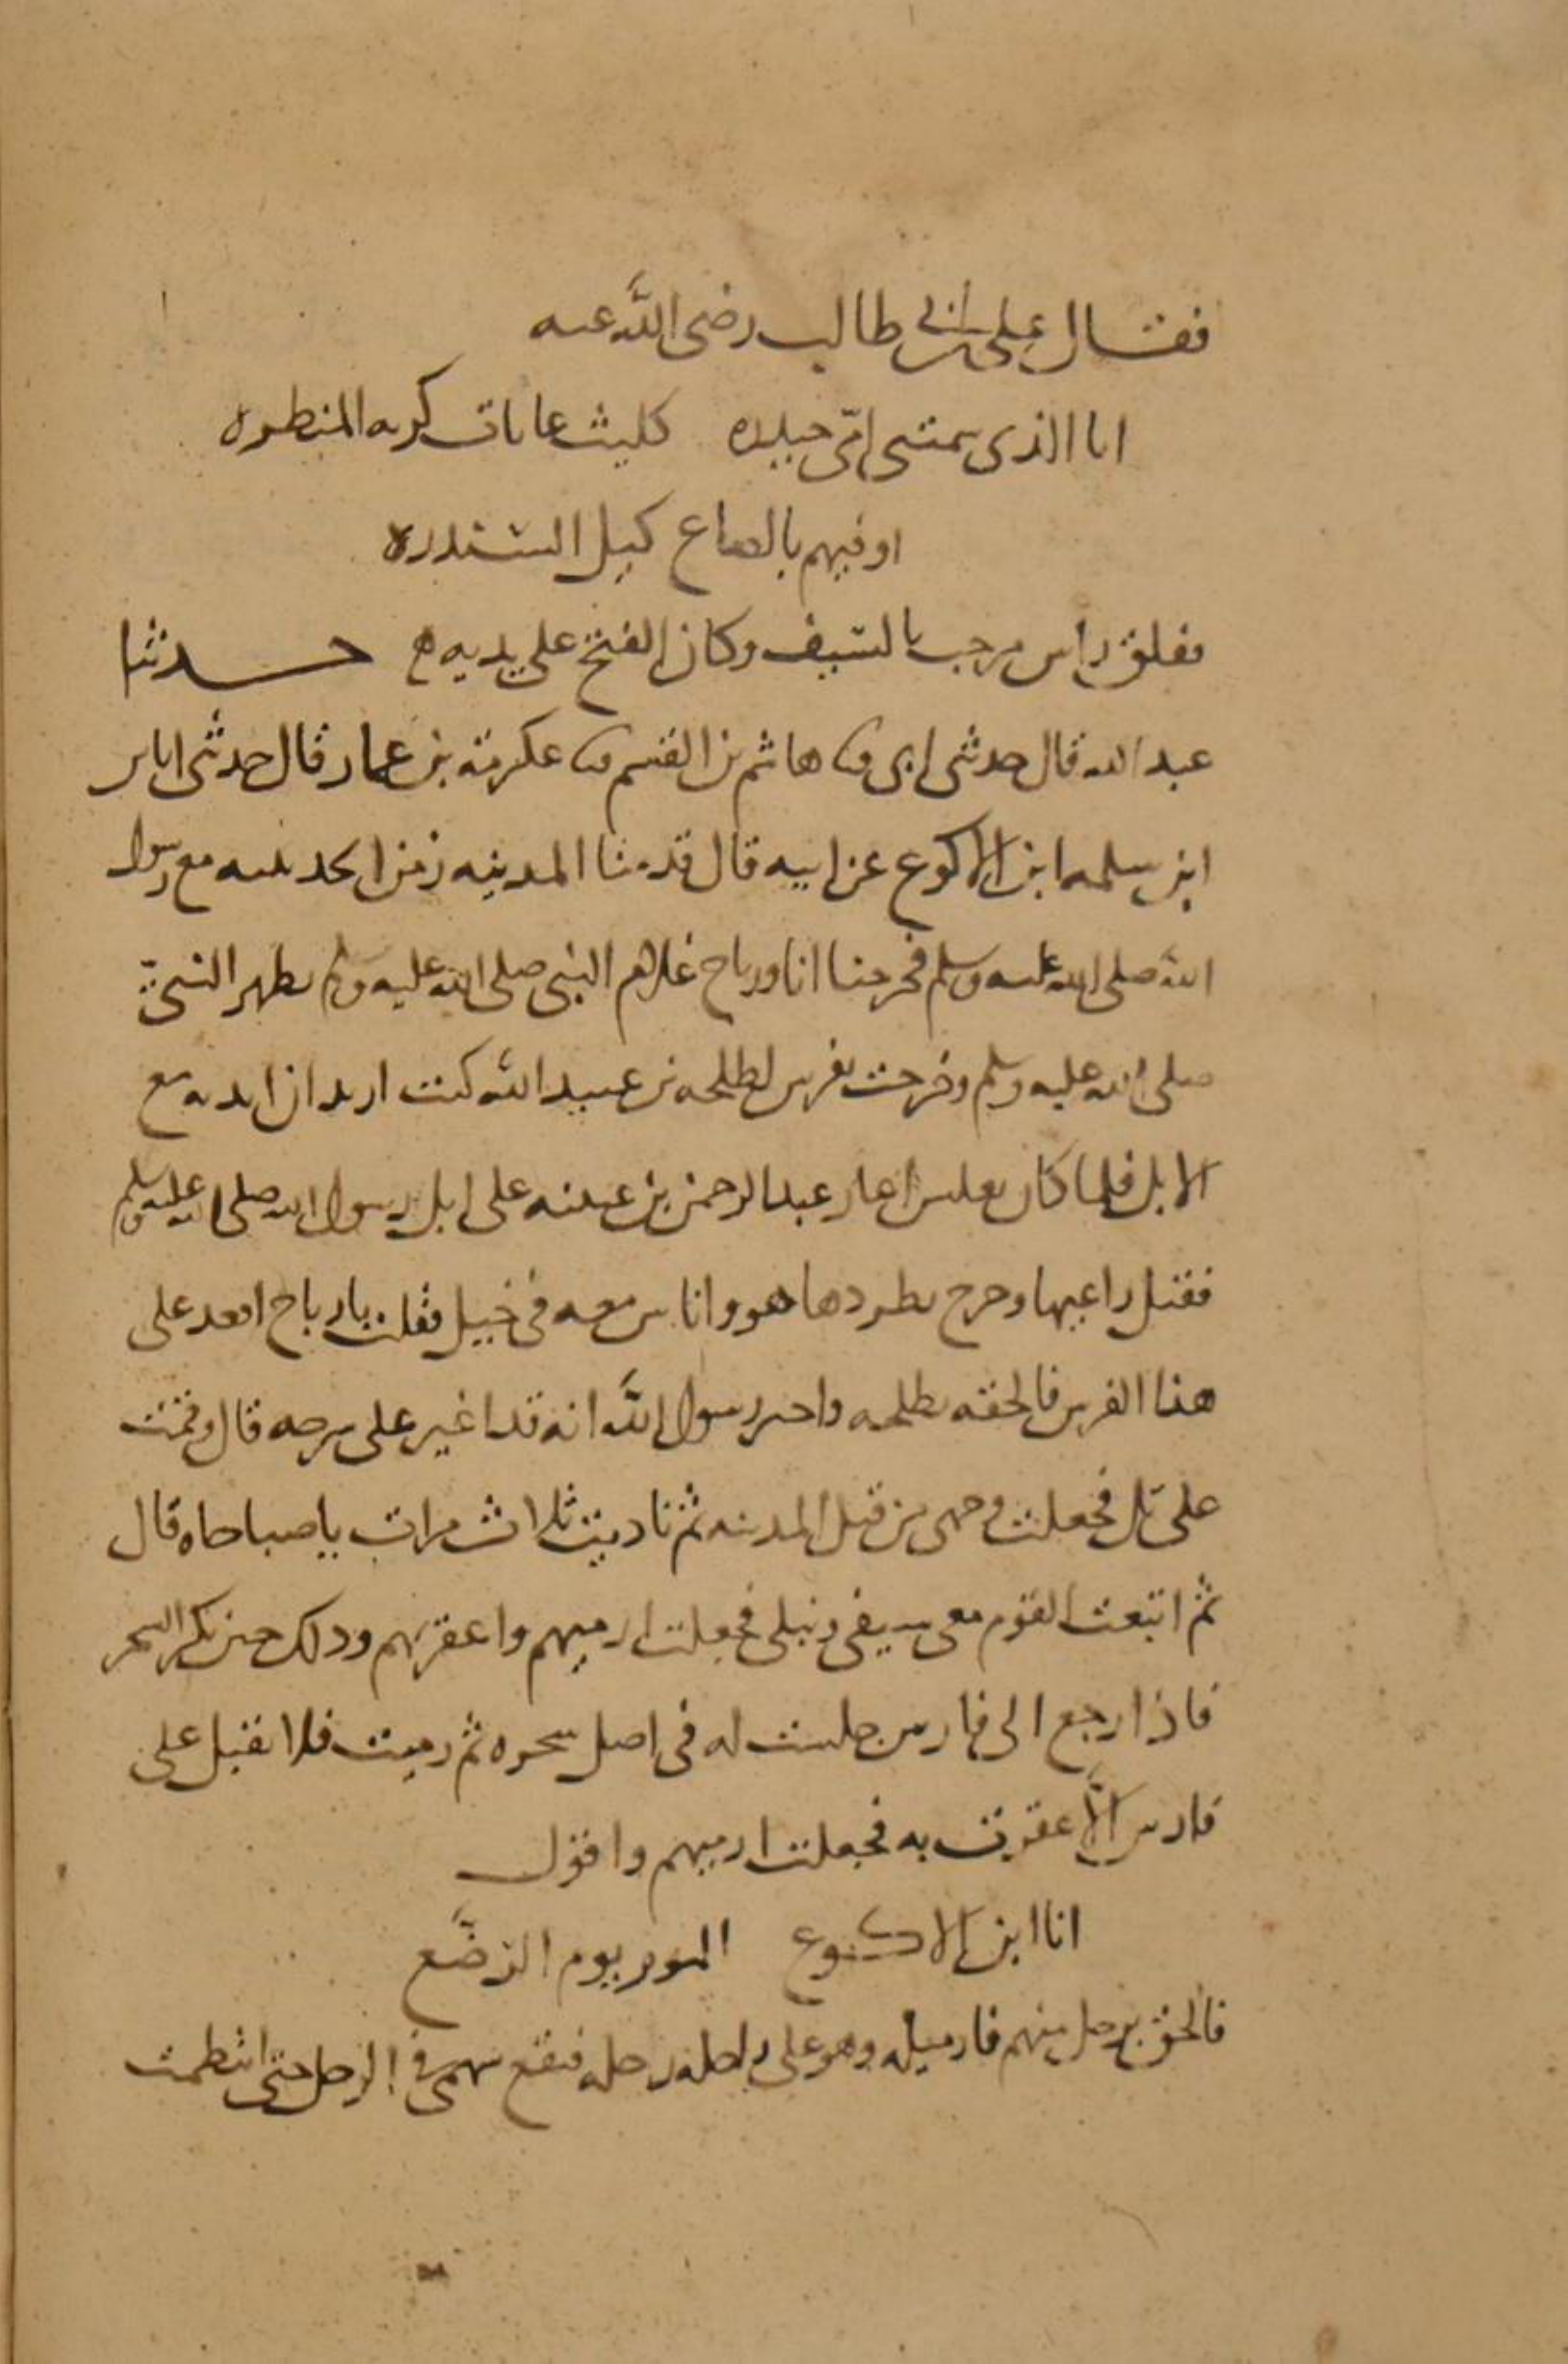 فقال علي بن ابي طالب رضى الله عنه
انا الذى سمتنى امّى حيدره كليث غابات كريه المنظره
اوفيهم بالصاع كيل السندره
ففلق راس مرحب بالسيف وكان الفتح على يديه ه حدثنا
عبد الله قال حدثنى ابى ثنا هاشم بن القسم ثنا عكرمة بن عمار قال حدثنى اياس
ابن سلمه ابن الاكوع عن ابيه قال قدمنا المدينه زمن الحديبيه مع رسول
الله صلى الله عليه وسلم فخرجنا انا ورباح غلام النبى صلى الله عليه وسلم بظهر النبىّ
صلى الله عليه وسلم وخرجت بفرس لطلحه بن عبيد الله كنت اريد ان ابديه مع
الابل فلما كان بغلس اغار عبد الرحمن بن عيينه على ابل رسول الله صلى الله عليه وسلم
فقتل راعيها وخرج يطردها هو واناس معه فى خيل فقلت يا رباح اقعد على
هذا الفرس فالحقه بطلحه واخبر رسول الله انه قد اغير على سرحه قال وقمت
على تل فجعلت وجهى من قبل المدينه ثم ناديت ثلاث مرات يا صباحاه قال
ثم اتبعت القوم معى سيفى ونبلى فجعلت ارميهم واعقر بهم وذلك حين يكثر الشجر
فاذا رجع الى فارس جلست له فى اصل شجره ثم رميت فلا يقبل على
فارس الّا عقرت به فجعلت ارميهم واقول
انا ابن الاكوع اليوم يوم الرضّع
فالحق برجل منهم فارميه وهو على راحله رحله فيقع سهمى فى الرجل حتى انتظمت